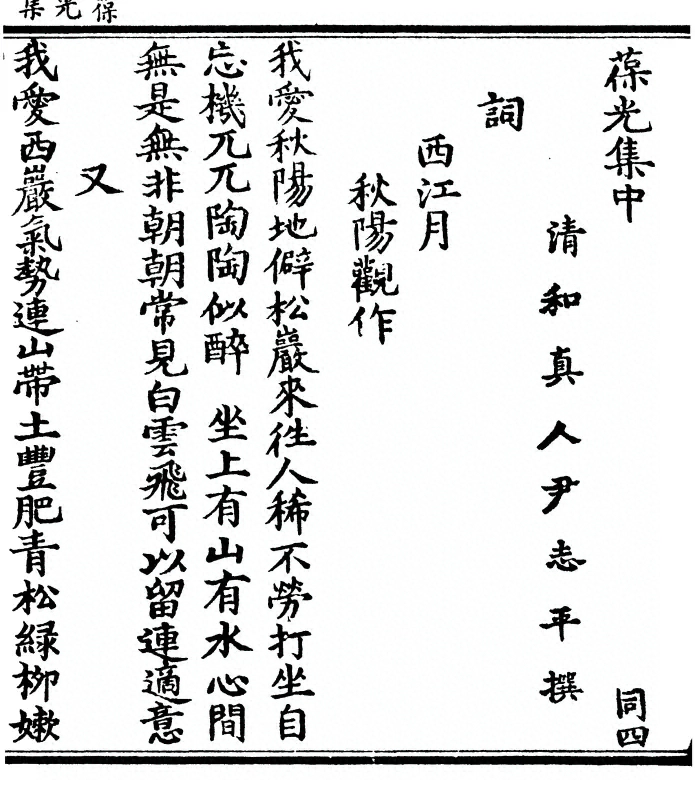 葆光集
葆光集中
同四
清和真人尹志平撰
詞
西江月
秋陽觀作
我愛秋陽地僻松巖來徃人稀不勞打坐自
忘機兀兀陶陶似醉　坐上有山有水心間
無是無非朝朝常見白雲飛可以留連適意
又
我愛西巖氣勢連山帶土豐肥青松緑柳嫰